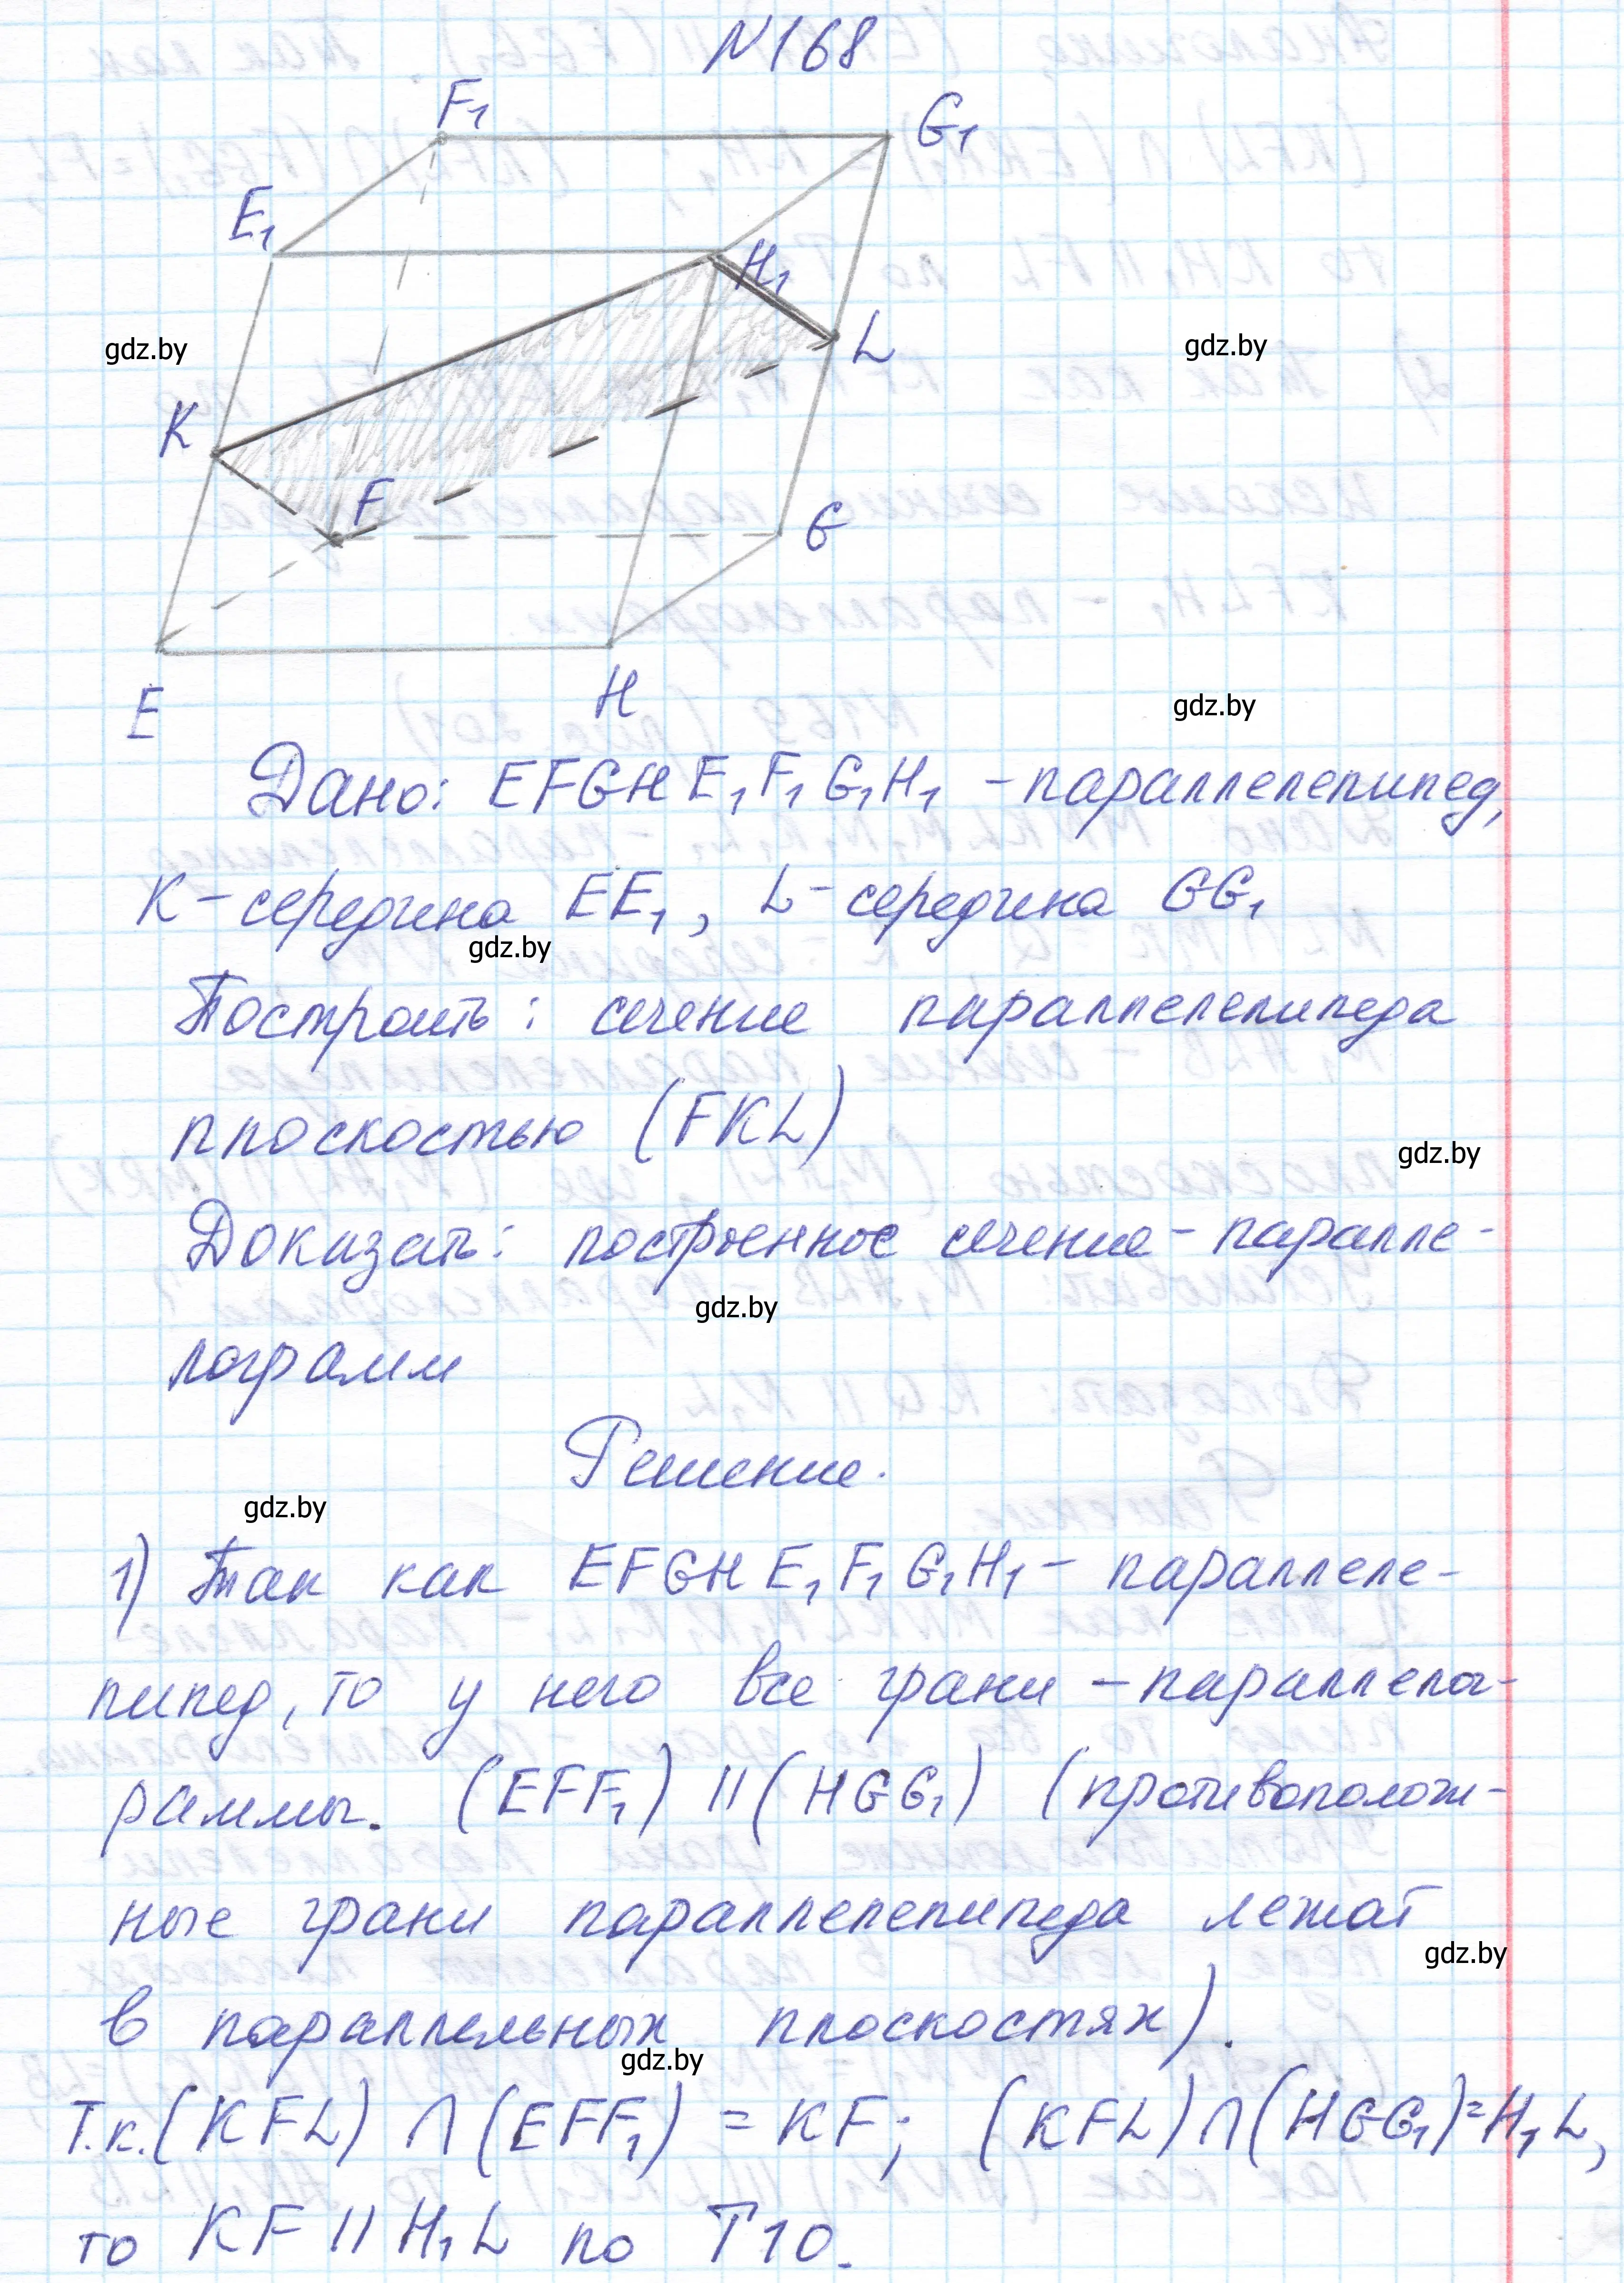 N168
F₁
G₁
E₁
H₁
gdz.by
gdz.by
L
K
F
G
E
H
gdz.by
Дано: EFGHE₁F₁G₁H₁ - параллелепипед,
K - середина EE₁, L - середина GG₁
gdz.by
Построить: сечение параллелепипеда
плоскостью (FKL)
gdz.by
Доказать: построенное сечение - паралле-
gdz.by
лограмм
Решение.
gdz.by
1) Так как EFGHE₁F₁G₁H₁ - параллеле-
пипед, то у него все грани - параллелог-
раммы. (EFF₁) || (HGG₁) (противополож-
ные грани параллелепипеда лежат
gdz.by
в параллельных плоскостях).
gdz.by
Т.к. (KFL) ∩ (EFF₁) = KF; (KFL) ∩ (HGG₁) = H₁L,
то KF || H₁L по Т10.